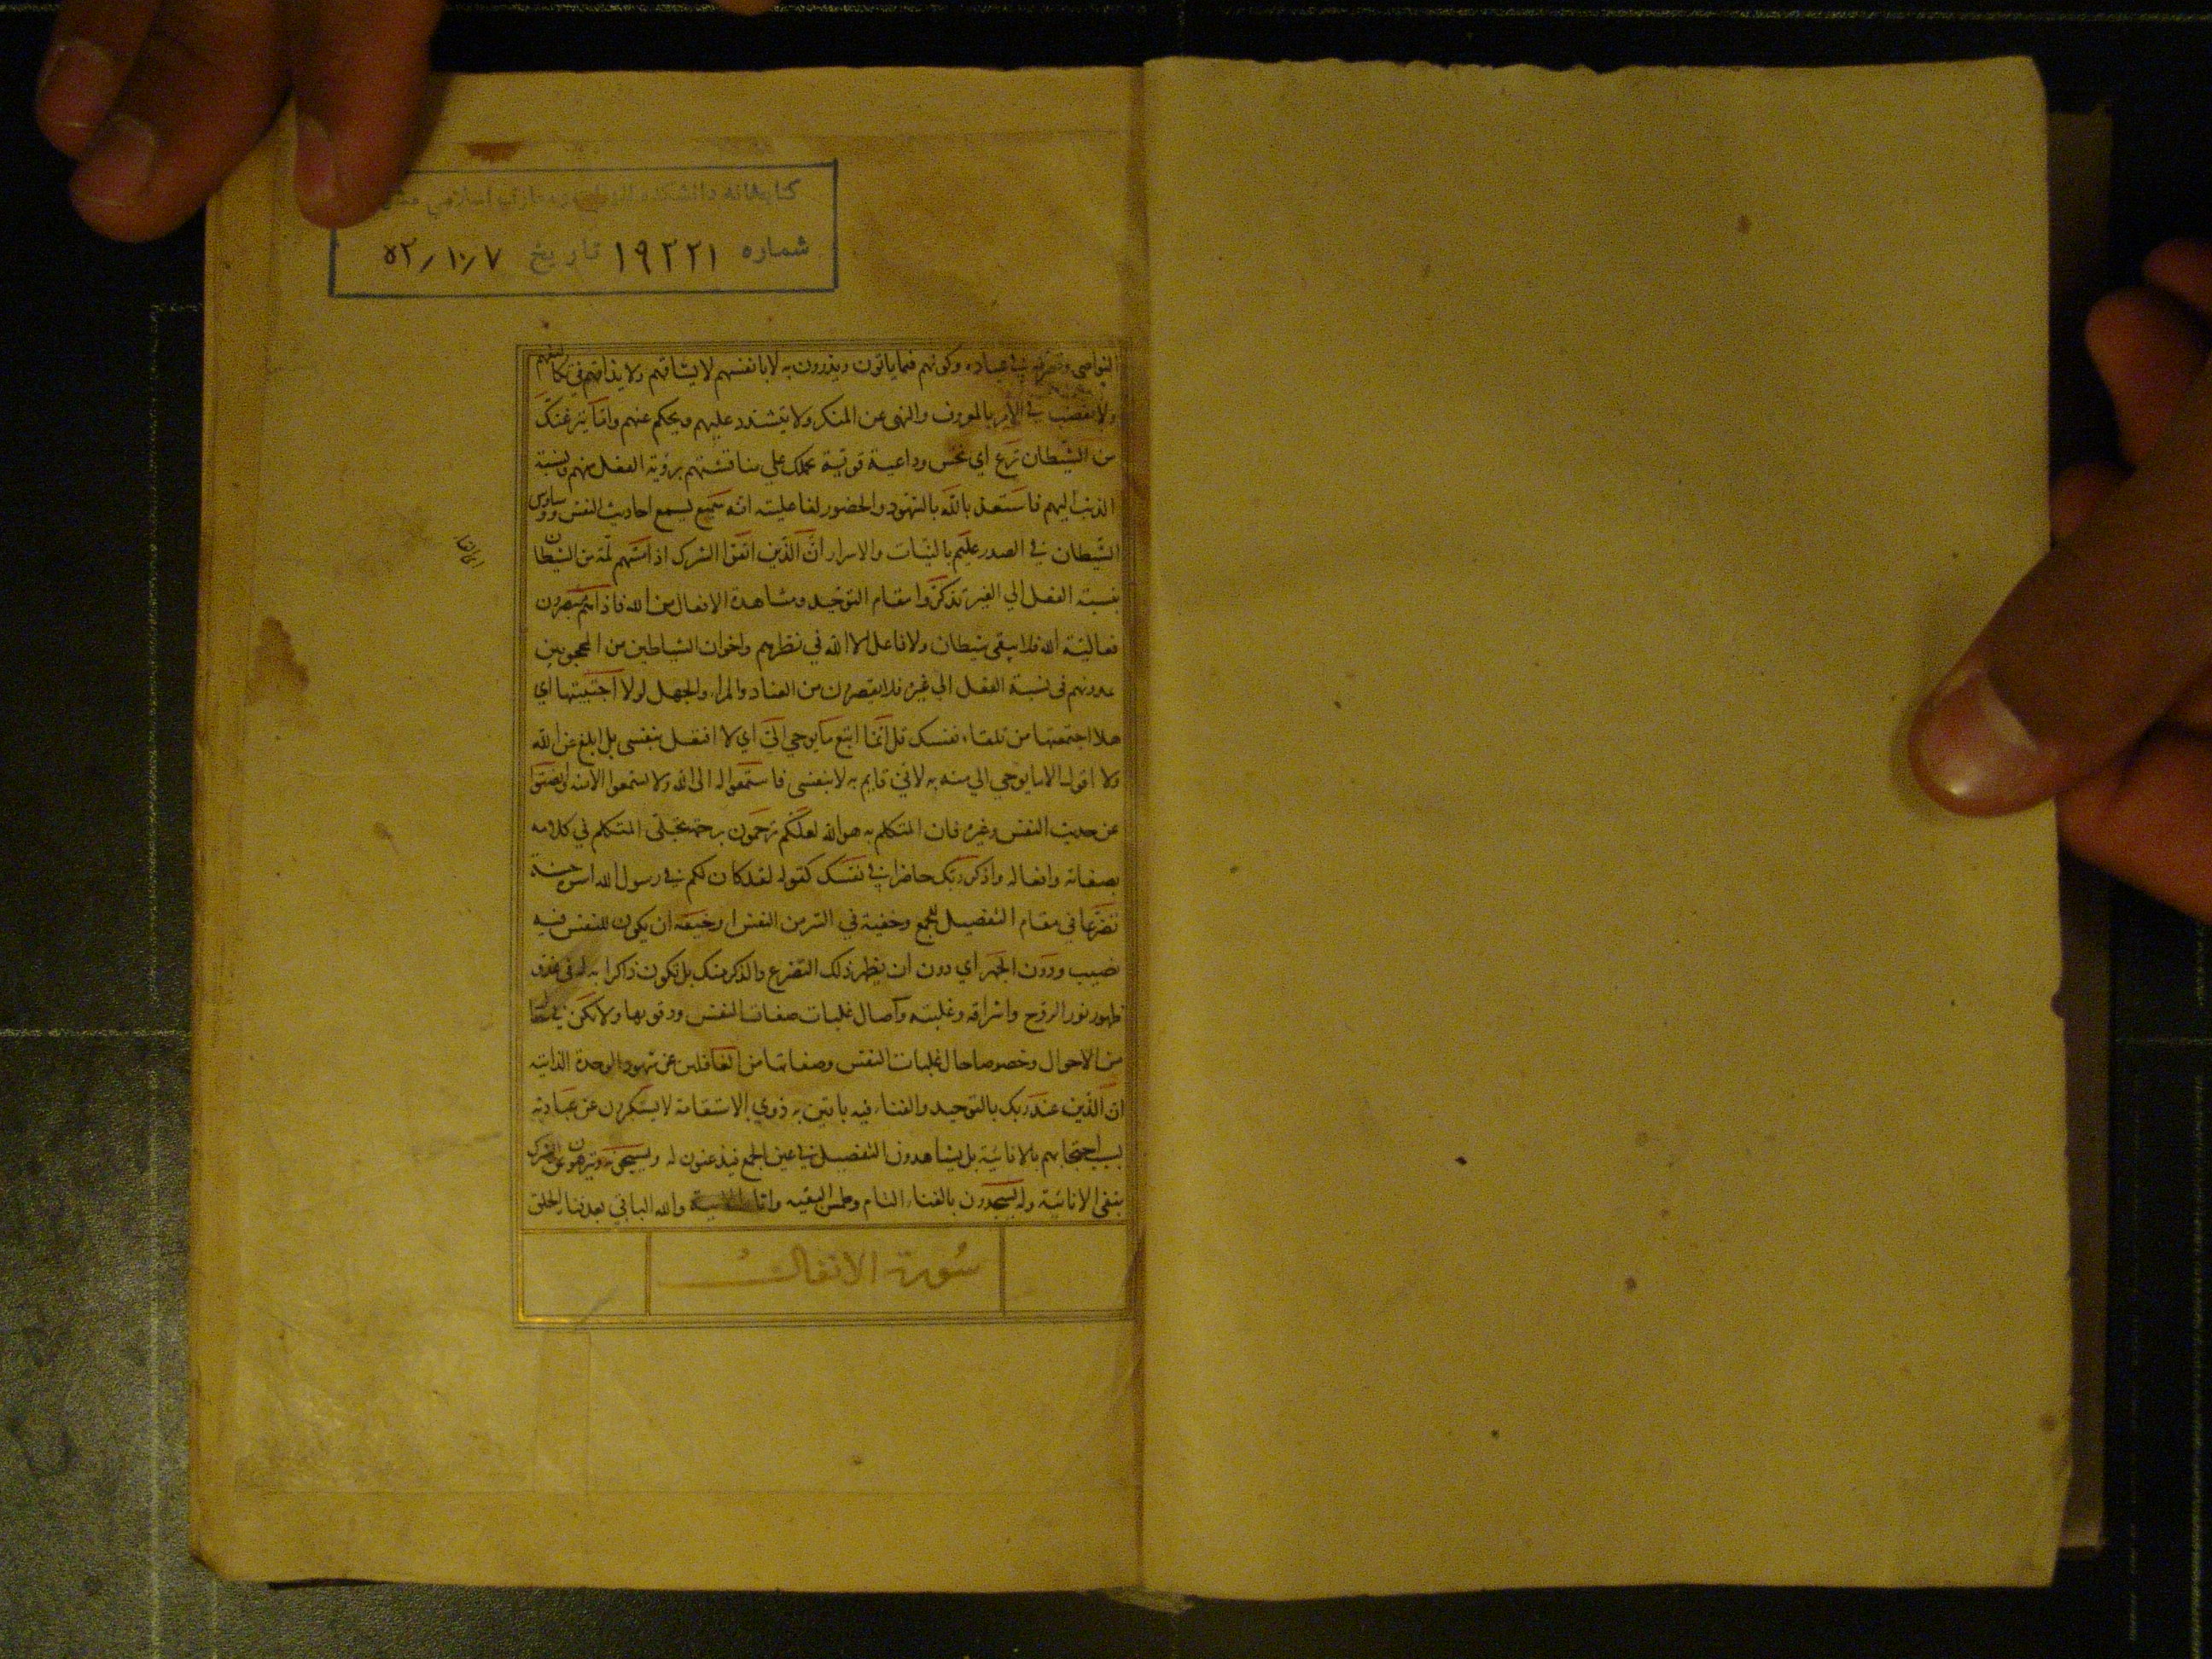 کتابخانه دانشکده الهیات و معارف اسلامی
شماره ۱۹۲۲۱ تاریخ ۵۲/۱۰/۷
النواصی وتصرفه في عباده وكونهم فيما ياتون ويذرون به لا بانفسهم لا يشاقهم ولا يداقهم في تكاليفهم
ولا يغضب في الامر بالمعروف والنهى عن المنكر ولا يتشدد عليهم ويحكم عنهم واما ينزغنك
من الشيطان نزغ اي نخس وداعية قوية تحملك علي مناقشتهم برؤية الفعل منهم ونسبة
الذنب اليهم فاستعذ بالله بالشهود والحضور لفاعليته انه سميع يسمع احاديث النفس ووساوس
الشيطان في الصدر عليم بالنيات والاسرار ان الذين اتقوا الشرك اذا مسهم لمة من الشيطان
بنسبة الفعل الي الغير تذكروا مقام التوحيد ومشاهدة الافعال من الله فاذا هم مبصرون
فعالية الله فلا يبقى شيطان ولا فاعل الا الله في نظرهم واخوان الشياطين من المحجوبين
يمدونهم فى نسبة الفعل الي غيره فلا يقصرون من العناد والمراء والجهل لولا اجتبيتها اي
هلا اجتمعتها من تلقاء نفسك قل انما اتبع ما يوحي الي اي لا افتعل بنفسى بل ابلغ عن الله
ولا اقول الا ما يوحي الي منه به لاني قايم به لا بنفسى فاستمعوا له الى الله ولا تستمعوا الا منه وانصتوا
عن حديث النفس وغيره فان المتكلم به هو الله لعلكم ترحمون برحمة تجلى المتكلم في كلامه
بصفاته وافعاله واذكر ربك حاضرا في نفسك كقوله لقد كان لكم في رسول الله اسوة حسنة
تضرعا في مقام التفصيل للجمع وخفية في السر من النفس او خيفة ان يكون للنفس فيه
نصيب ودون الجهر اي دون ان يظهر ذلك التضرع والذكر منك بل تكون ذاكرا به له في غدو
ظهور نور الروح واشراقه وغلبته وآصال غلبات صفات النفس وقوبها ولا تكن في حال
من الاحوال وخصوصا حال غلبات النفس وصفاتها من الغافلين عن شهود الوحدة الذاتية
ان الذين عند ربك بالتوحيد والفناء فيه باقين به ذوي الاستقامة لا يستكبرون عن عبادته
بسبب احتجابهم بالانائية بل يشاهدون التفصيل في عين الجمع فيذعنون له ويسبحونه وينزهونه عن الشرك
بنفى الانائية وله يسجدون بالفناء التام وطمس البقيه والله الباقي بعد فناء الخلق
سورة الانفال